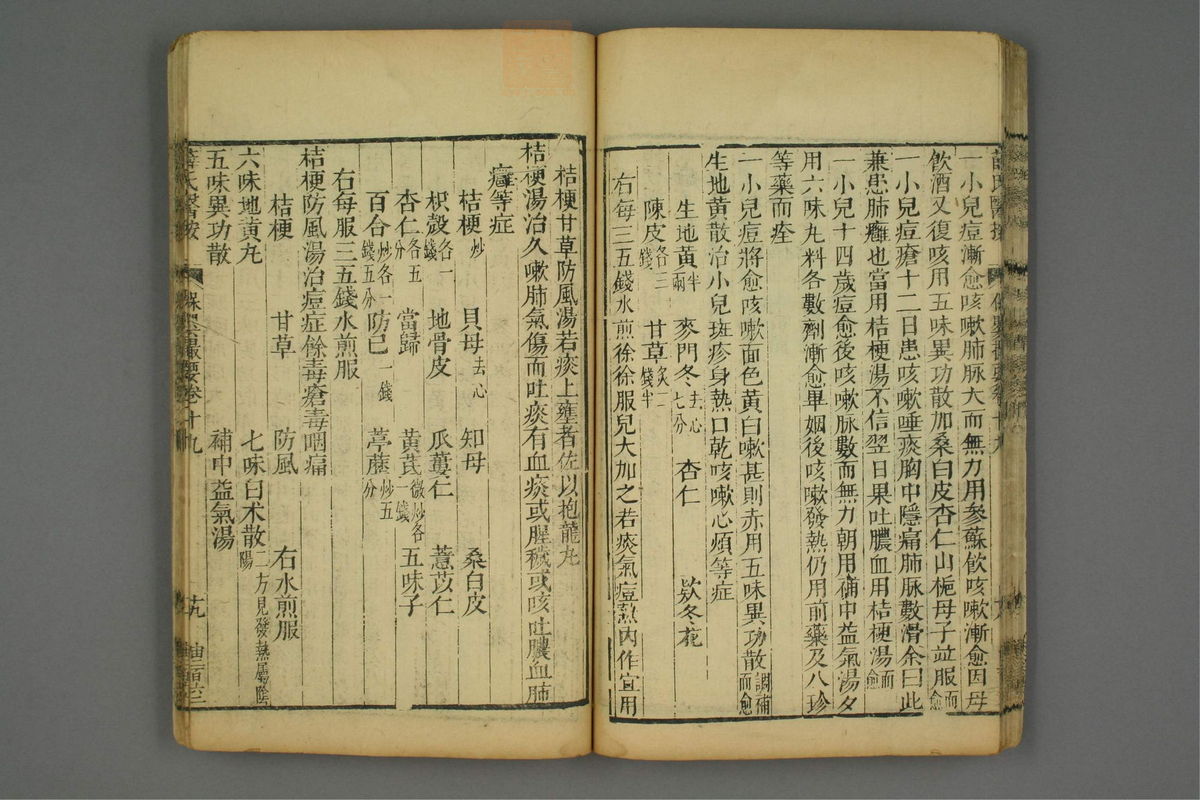 一小兒痘漸愈咳嗽肺脉大而無力用參蘇飲咳嗽漸愈因母
飲酒又復咳用五味異功散加桑白皮杏仁山梔母子並服而愈
一小兒痘瘡十二日患咳嗽唾痰胸中隱痛肺脉數滑余曰此
兼患肺癰也當用桔梗湯不信翌日果吐膿血用桔梗湯而愈
一小兒十四歲痘愈後咳嗽脉數而無力朝用補中益氣湯夕
用六味丸料各數劑漸愈畢姻後咳嗽發熱仍用前藥及八珍
等藥而痊
一小兒痘將愈咳嗽面色黃白嗽甚則赤用五味異功散調補而愈
生地黃散治小兒斑疹身熱口乾咳嗽心煩等症
生地黃半兩 麥門冬去心七分 杏仁 欵冬花
陳皮各三錢 甘草炙一錢半
右每三五錢水煎徐徐服兒大加之若痰氣痘熱内作宜用
桔梗甘草防風湯若痰上壅者佐以抱龍丸
桔梗湯治久嗽肺氣傷而吐痰有血痰或腥穢或咳吐膿血肺
癰等症
桔梗炒 貝母去心 知母 桑白皮
枳殼各一錢 地骨皮 瓜蔞仁 薏苡仁
杏仁各五分 當歸 黃芪微炒各一錢 五味子
百合炒各一錢五分 防已一錢 葶藶炒五分
右每服三五錢水煎服
桔梗防風湯治痘症餘毒瘡毒咽痛
桔梗 甘草 防風 右水煎服
六味地黃丸 七味白术散二方見發熱屬陰陽
五味異功散 補中益氣湯
薛氏醫按 保嬰撮要卷十九 十九